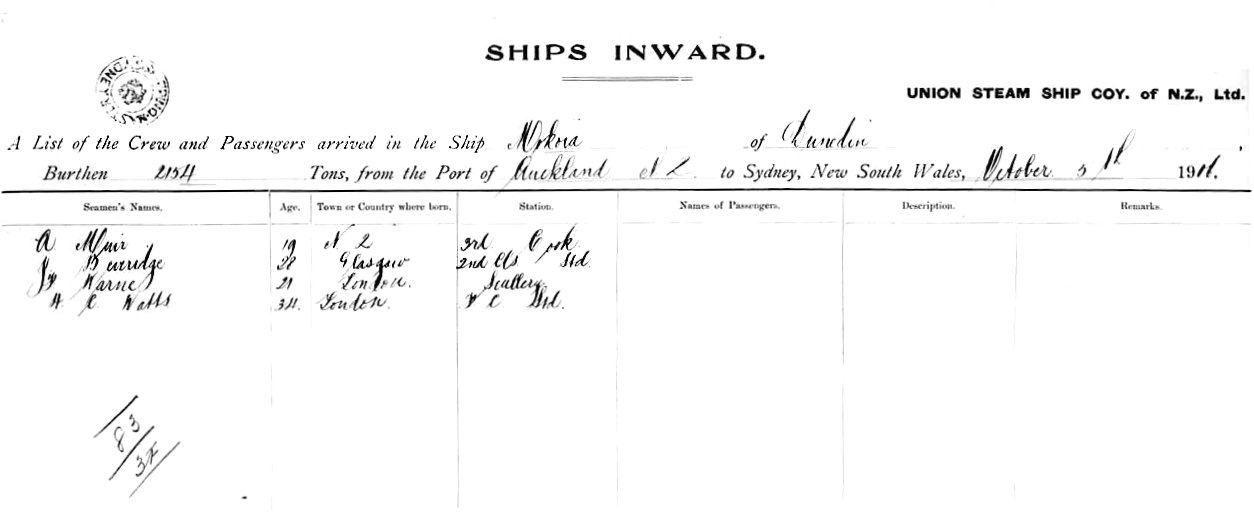 SHIPS INWARD.
UNION STEAM SHIP COY. of N.Z., Ltd.
A List of the Crew and Passengers arrived in the Ship Mokoia of Dunedin
Burthen 2154 Tons, from the Port of Auckland N Z to Sydney, New South Wales, October 5th 1901.
Seamen's Names. Age. Town or Country where born. Station. Names of Passengers. Description. Remarks.
A Muir 19 N Z 3rd Cook
Beveridge 28 Glasgow 2nd Cls Std.
Warne 21 London. Scullery
H C Watts 34. London. F C Std.
83
37